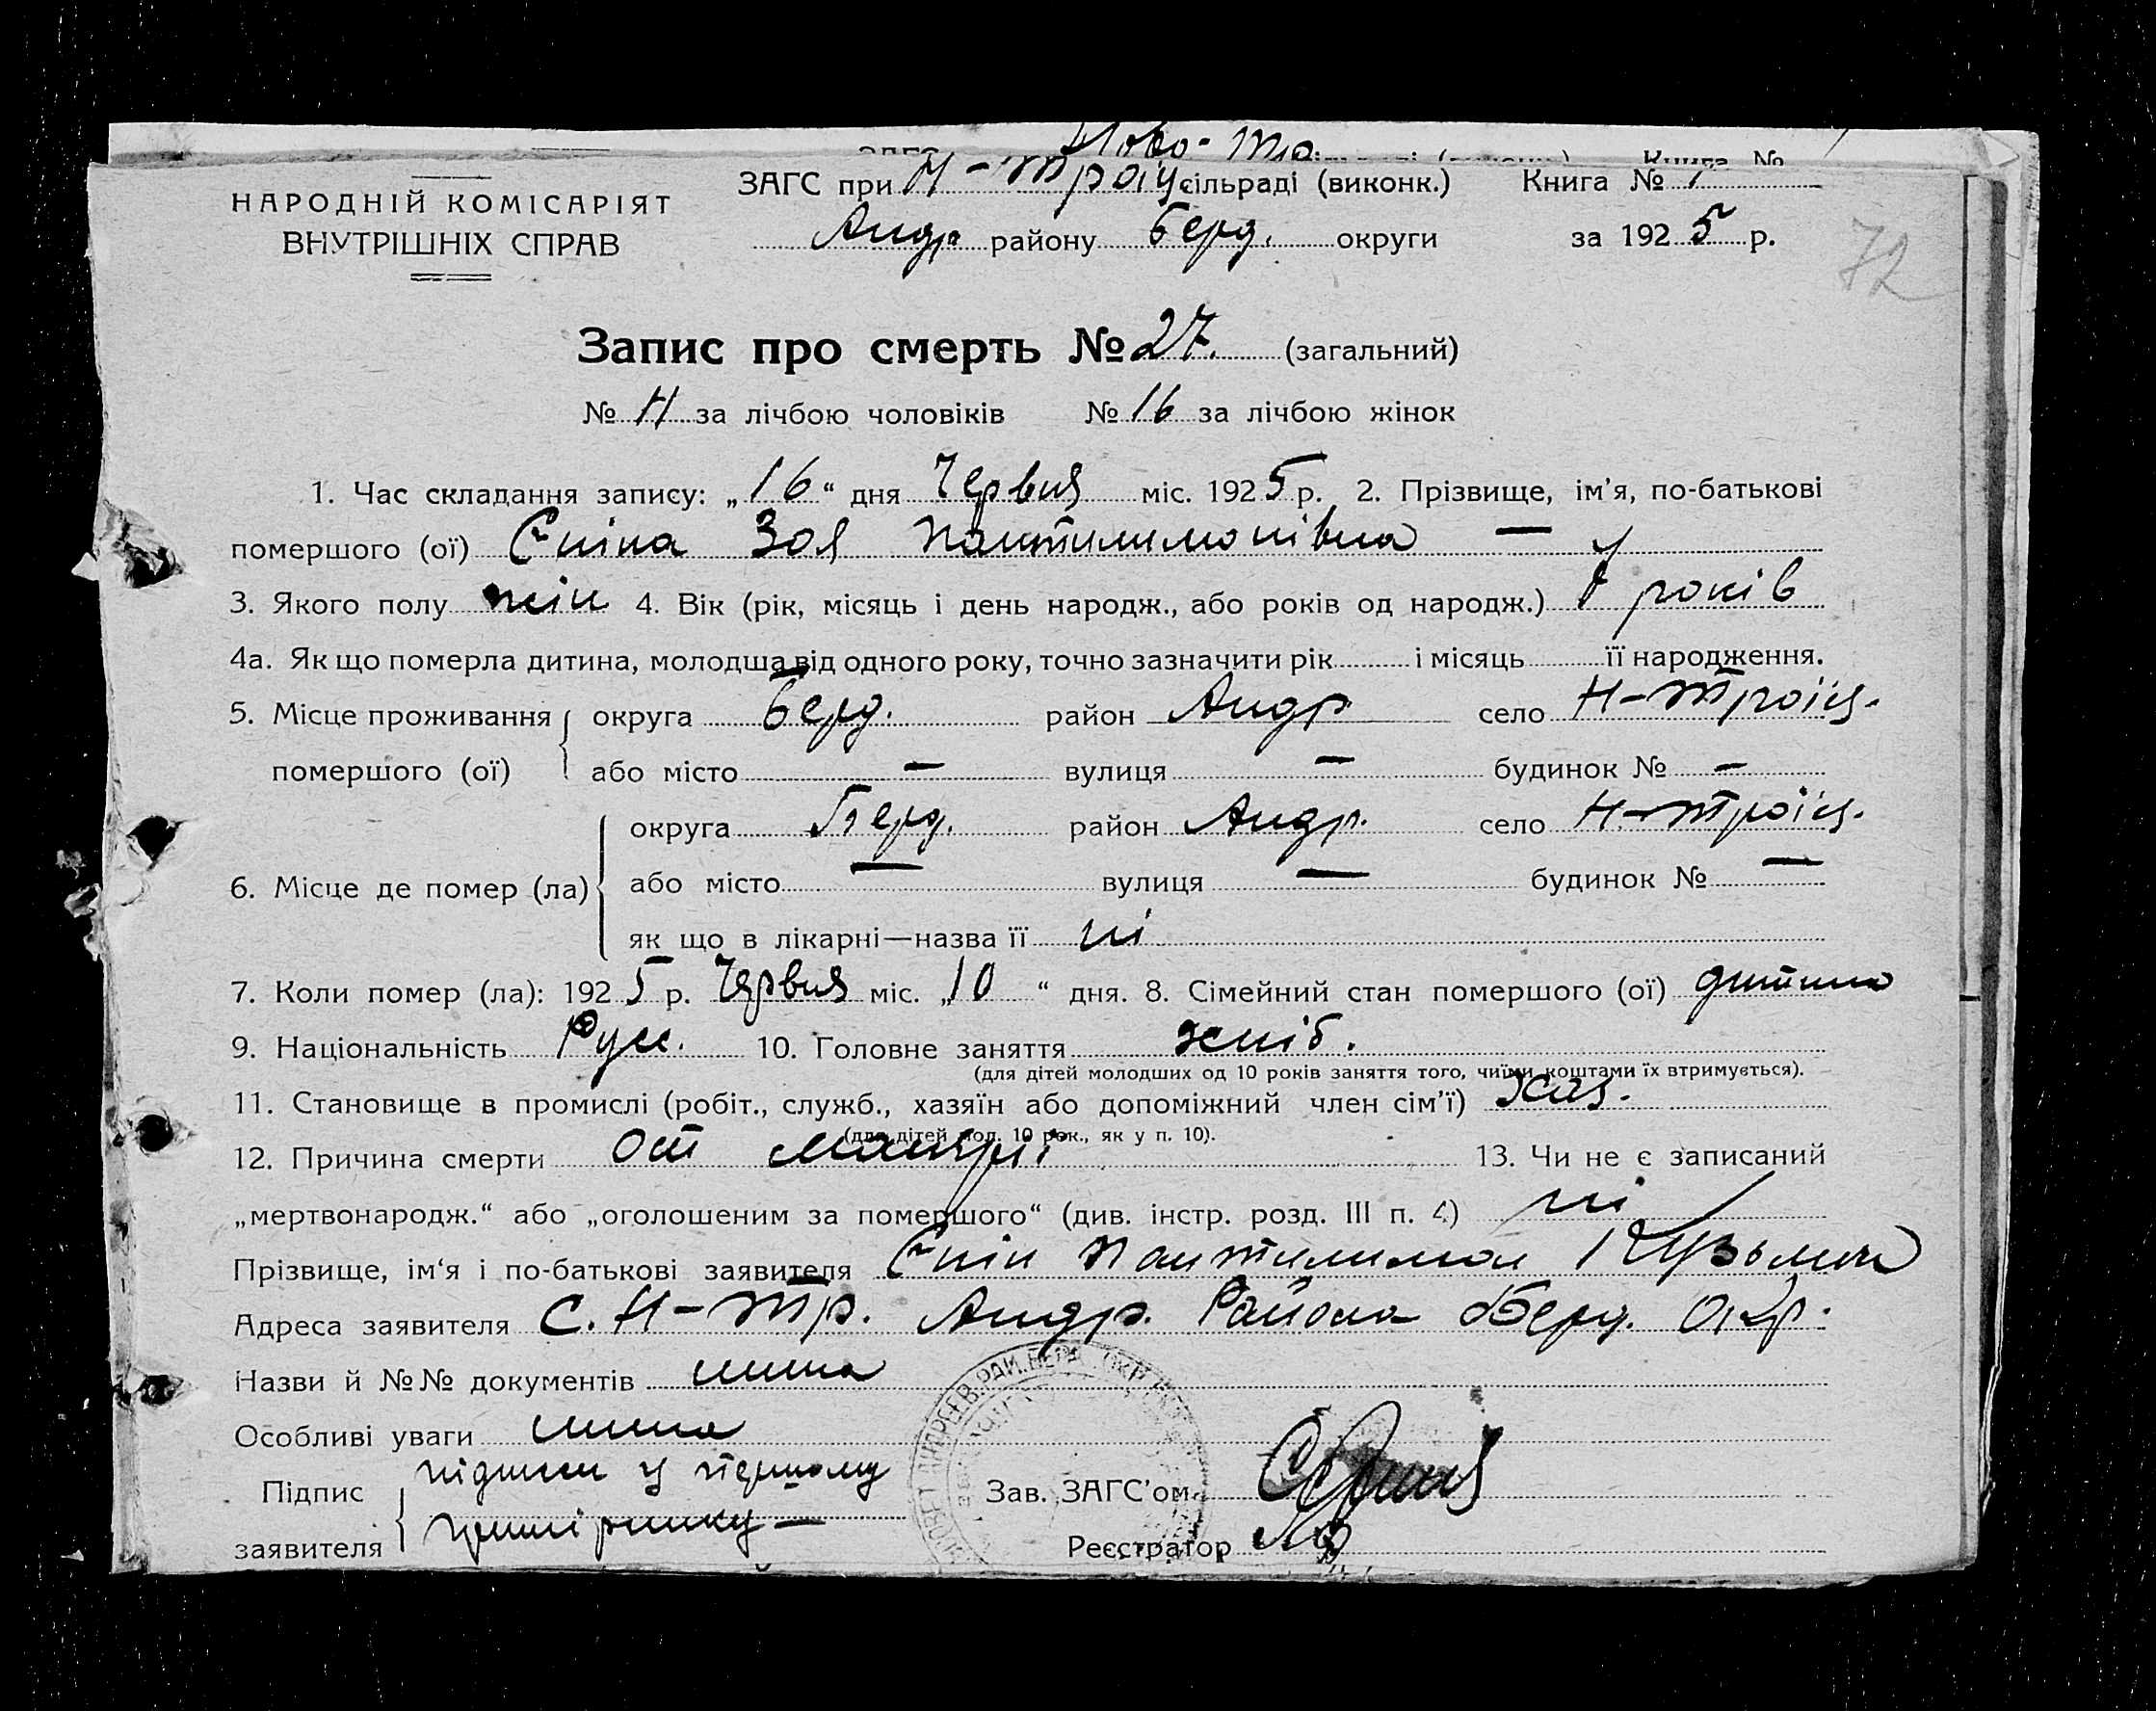 Ново-Тро
ЗАГС при Н-Троіц сільраді (виконк.) Книга №
НАРОДНІЙ КОМІСАРІЯТ
ВНУТРІШНІХ СПРАВ
Андр району Берд. округи за 1925 р.
72
Запис про смерть № 27. (загальний)
№ 11 за лічбою чоловіків № 16 за лічбою жінок
1. Час складання запису: „16“ дня Червня міс. 1925 р. 2. Прізвище, ім'я, по-батькові
помершого (ої) Зоя Пантилимонівна —
3. Якого полу жін 4. Вік (рік, місяць і день народж., або років од народж.) років
4а. Як що померла дитина, молодша від одного року, точно зазначити рік і місяць її народження.
5. Місце проживання помершого (ої) округа Берд. район Андр село Н-Троіц.
або місто — вулиця — будинок № —
6. Місце де помер (ла) округа Берд. район Андр. село Н-Троїц.
або місто — вулиця — будинок № —
як що в лікарні—назва її ні
7. Коли помер (ла): 1925 р. Червня міс. „10“ дня. 8. Сімейний стан помершого (ої) дитина
9. Національність Русс. 10. Головне заняття хліб.
(для дітей молодших од 10 років заняття того, чиїми коштами їх втримується).
11. Становище в промислі (робіт., служб., хазяїн або допоміжний член сім'ї) хаз.
(для дітей мол. 10 рок., як у п. 10).
12. Причина смерти от 13. Чи не є записаний
„мертвонародж.“ або „оголошеним за помершого“ (див. інстр. розд. III п. 4) ні
Прізвище, ім'я і по-батькові заявителя Пантилимон Кузьмич
Адреса заявителя с. Н-Тр. Андр. Района Берд. Окр.
Назви й №№ документів нима
Особливі уваги нима
Підпис заявителя підписи у першому
примірнику —
Зав. ЗАГС'ом
Реєстратор